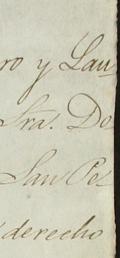 ro y Lau
Sra. Do
San Pe
derecho